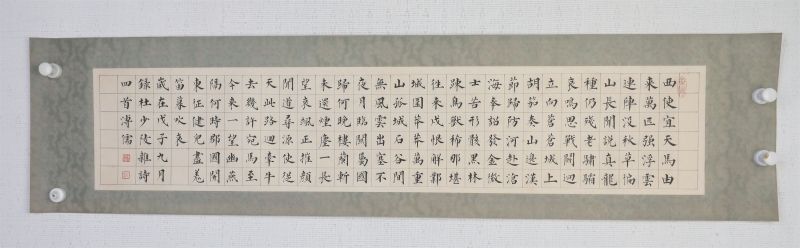 西使宜天馬由
來萬匹強浮雲
連陣沒秋草徧
山長聞說真龍
種仍殘老驌驦
哀鳴思戰鬭迥
立向蒼蒼城上
胡笳奏山邊漢
節歸防河赴滄
海奉詔發金微
士苦形骸黑林
疎鳥獸稀那堪
往來戍恨解鄴
城圍莽莽萬重
山孤城石谷間
無風雲出塞不
夜月臨關屬國
歸何晚樓蘭斬
未還煙塵一長
望衰颯正摧顏
聞道尋源使從
天此路迴牽牛
去幾許宛馬至
今來一望幽燕
隔何時郡國開
東征健兒盡羌
笛暮吹哀
歲在戊子九月
錄杜少陵雜詩
四首溥儒